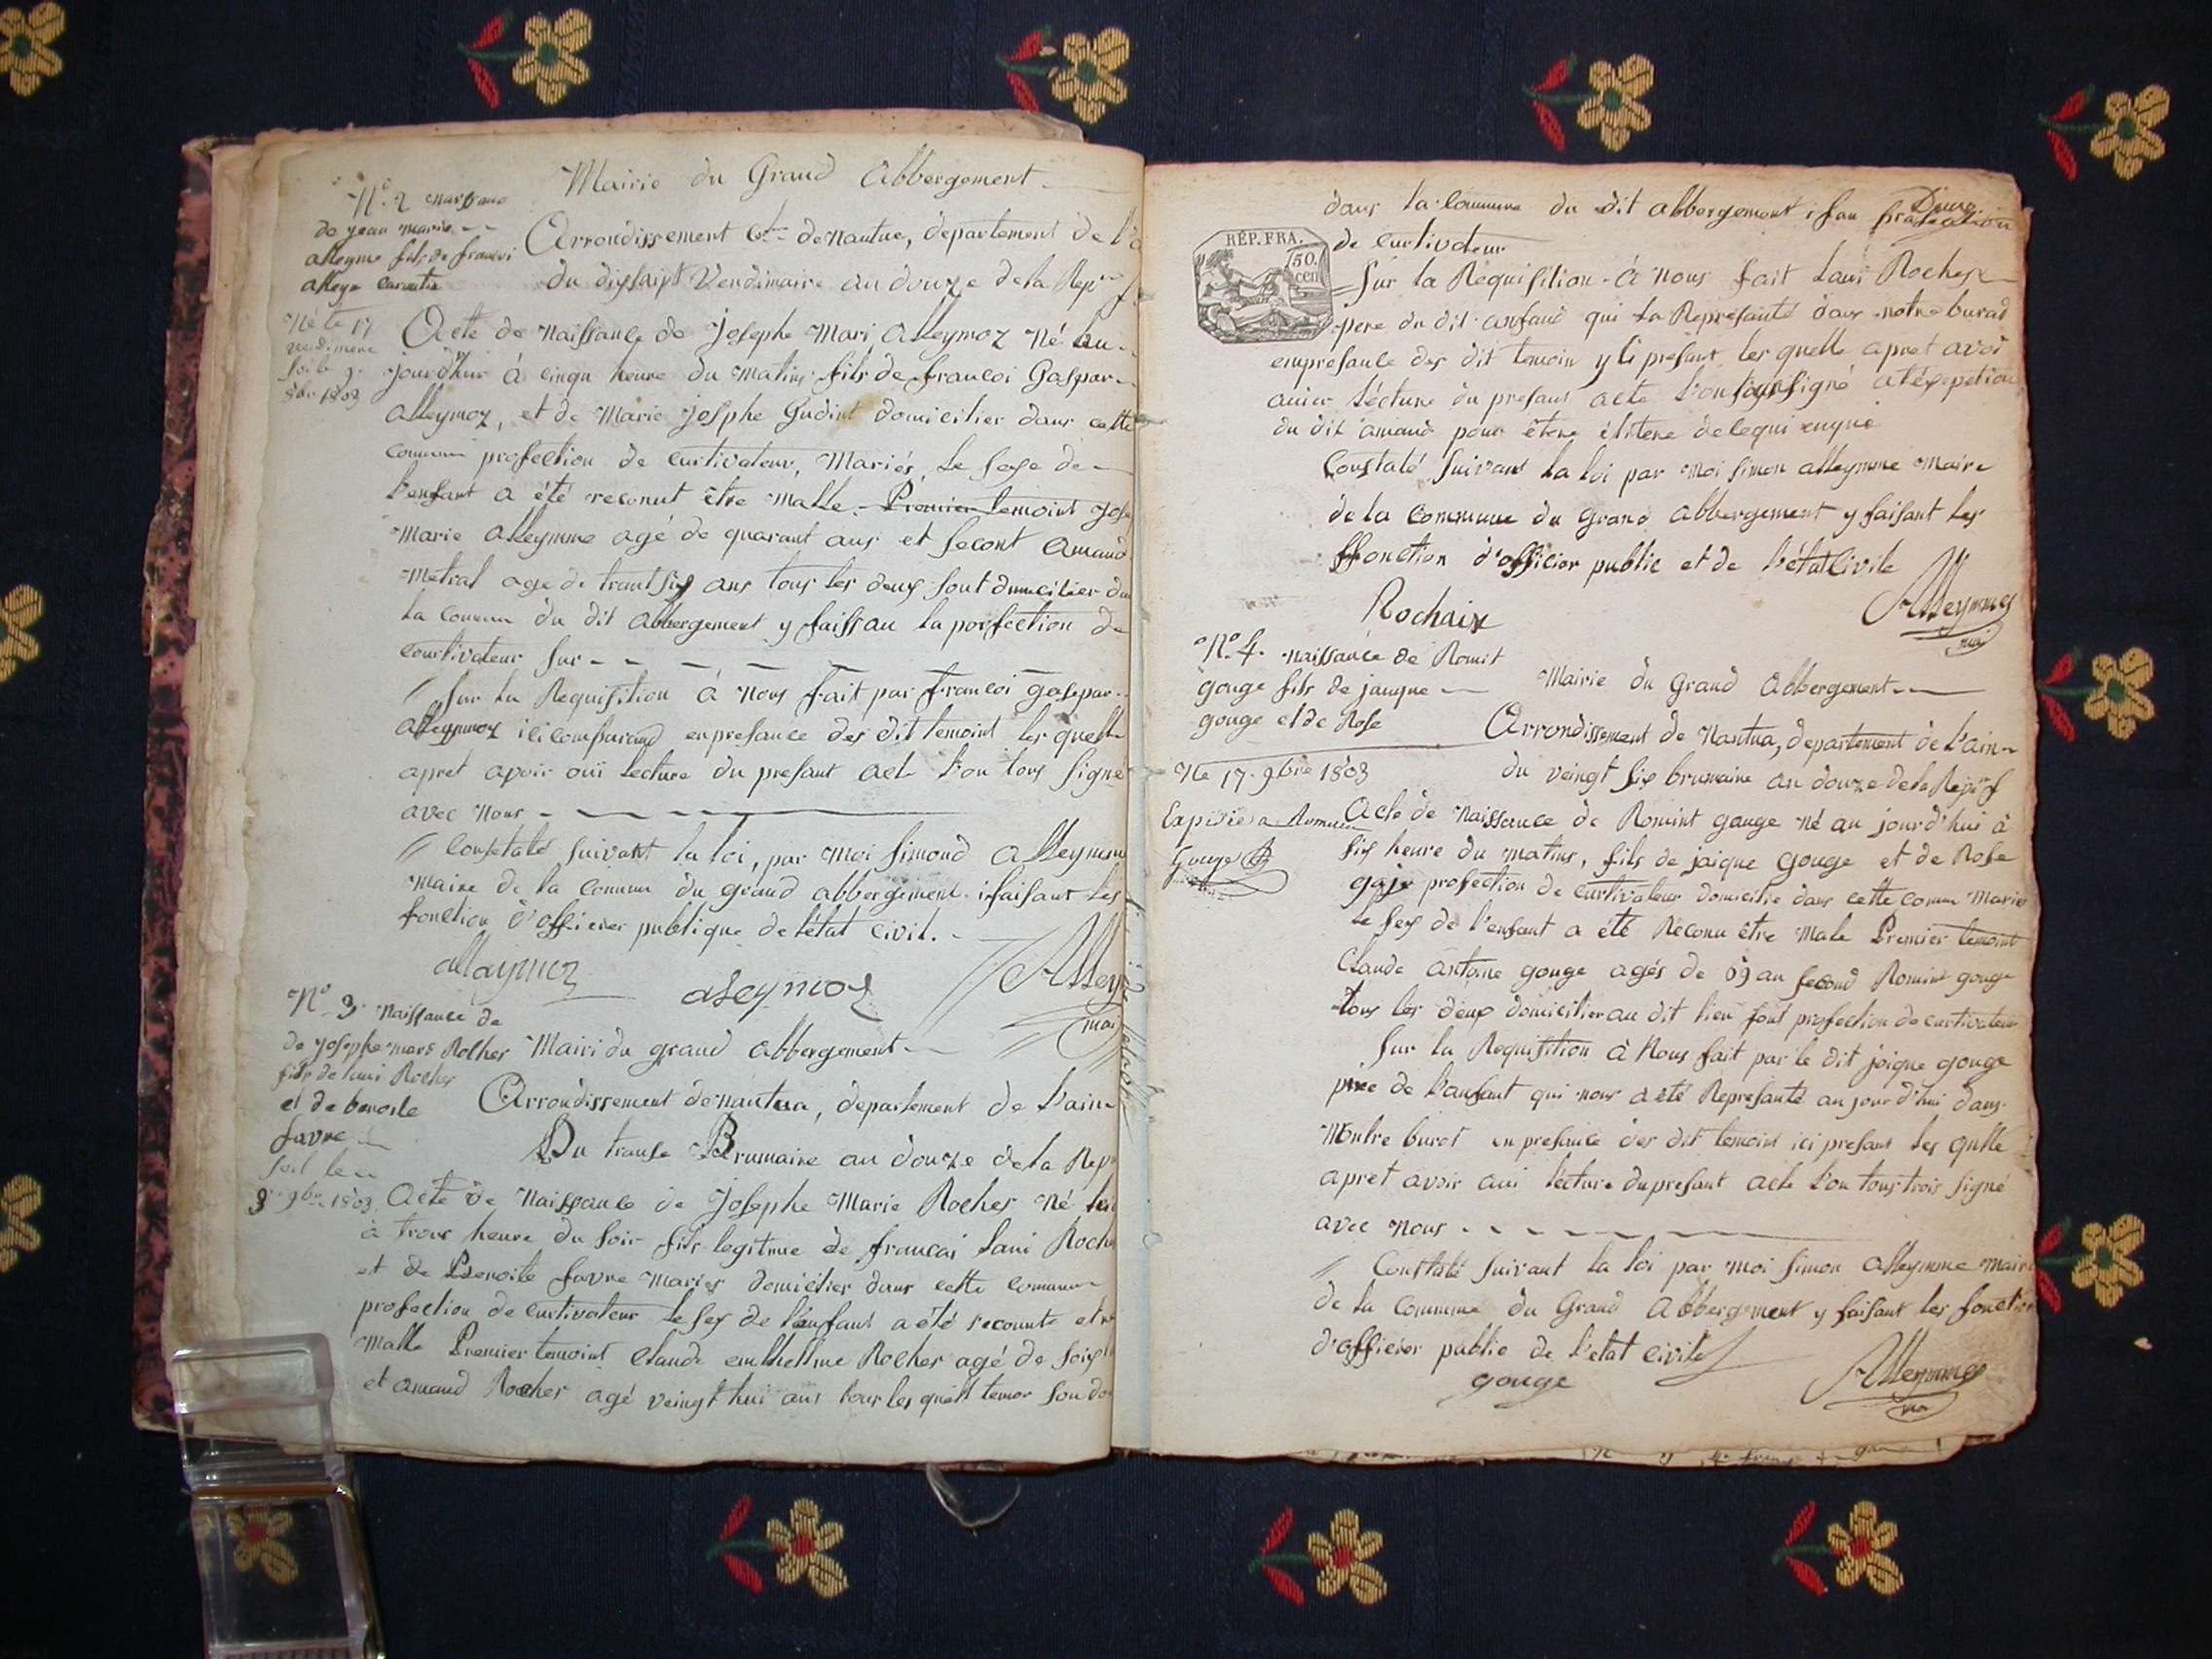 Mairie du Grand abbergement
N.º 2 naissance
de jean marie
alleyme fils de francoi
Arrondissement de nantua, departement de l'a
du dixsaipt Vendimaire an douze de la Rep
Né le 17
vendimere
8bre 1803
Acte de naissance de josephe Mari alleymoz Né au-
jourd'hui à cinqu heure du matins fils de francoi Gaspar-
alleymoz, et de Marie josphe Gudint domicilier dans cette
commun profection de curtivateur, Mariés, le sexe de
l'enfant a été reconut être malle. Premier temoint jose
marie alleymme agé de quarant ans et secont amand
metral age de trant six ans tous les deux sont domicilier dan
la commun du dit abbergement y faissan la porfection de
courtivateur sur
sur la Requisition à nous fait par francoi gasepar
alleymmoz ici comparand enpresance des dit temoint les quelle
apret avoir oui lecture du presant acte l'on tous signé
avec nous
Constaté suivant la loi, par moi simond alleymme
maire de la commun du grand abbergement ifaisant les
fonction d'officier publique de l'état civil.
allaymoz aleymoz Alley
mai
N.º 3 naissance de
de josephe mari Rocher
Mairi du grand abbergement
fils de laui Rocher
et de benoite
favre
Arrondissement de nantua, departement de l'ain
Du transe Brumaire an douze de la Rep
soit le
3 9bre 1803
Acte de naissance de josephe Marie Rocher né
à trois heure du soir fils legitme de francai laui Roche
et de Benoite favre mariés domicilier dans cette commun
profection de curtivateur le sex de l'enfant a été reconnte etre
malle Premier temoint Claude emthellme Rocher agé de
et amand Rocher agé veingt hui ans tous les quell temoi son do
dans la commune du dit abbergement i fan profection
de curtivateur
REP. FRA.
50.
cen
Sur la Requisition à nous fait laui Rocher
pere du dit anfand qui la Represanté dans notre burad
enpresance des dit temoin y li presant les quelle apret avoi
auier lécture du presans acte l'on soussigné
du dit amand pour étere
Constaté suivant la loi par moi simon alleymme maire
de la commune du grand abbergement y faisant les
ffonction d'officier public et de l'état Civile
Rochaix Alleymme
mai
N.º 4. naissance de Romit
gouge fils de jauqne
gouge et de Rose
Mairie du Grand abbergement
Arrondissement de Nantua, departement de l'ain
Né 17. 9bre 1803
du veingt six brumaire an douze de la Rep
Expidié a Romain
Gouge
Acte de naissance de Romint gouge né au jourd'hui à
six heure du matins, fils de jaique gouge et de Rose
gaje profection de curtivateur domicilié dans cette comun Mariés
le sex de l'enfant a été Réconu être male Premier temoint
Claude antoine gouge agés de 69 an second Romint gouge
tous les deux domicilier au dit lieu font profection de curtivateur
Sur la Requisition à Nous fait par le dit jaique gouge
pere de l'anfant qui nous a été Represanté aujourd'hui dans
Nontre burot enpresance des dit temoint ici presant les quelle
apret avoir oui lécture dupresant acte l'on tous trois signé
avec nous
Constaté suivant la loi par moi simon alleymme maire
de la commune du Grand abbergement y faisant les fonction
d'officier public de l'etat civile
gouge Alleymme